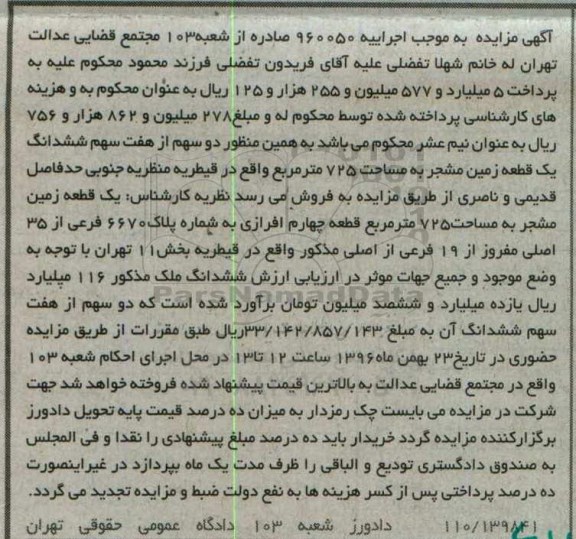 آگهی مزایده به موجب اجراییه ۹۶۰۰۵۰ صادره از شعبه۱۰۳ مجتمع قضایی عدالت
تهران له خانم شهلا تفضلی علیه آقای فریدون تفضلی فرزند محمود محکوم علیه به
پرداخت ۵ میلیارد و ۵۷۷ میلیون و ۲۵۵ هزار و ۱۲۵ ریال به عنوان محکوم به و هزینه
های کارشناسی پرداخته شده توسط محکوم له و مبلغ۲۷۸ میلیون و ۸۶۲ هزار و ۷۵۶
ریال به عنوان نیم عشر محکوم می باشد به همین منظور دو سهم از هفت سهم ششدانگ
یک قطعه زمین مشجر به مساحت ۷۲۵ مترمربع واقع در قیطریه منظریه جنوبی حدفاصل
قدیمی و ناصری از طریق مزایده به فروش می رسد نظریه کارشناس: یک قطعه زمین
مشجر به مساحت۷۲۵ مترمربع قطعه چهارم افرازی به شماره پلاک۶۶۷۰ فرعی از ۳۵
اصلی مفروز از ۱۹ فرعی از اصلی مذکور واقع در قیطریه بخش۱۱ تهران با توجه به
وضع موجود و جمیع جهات موثر در ارزیابی ارزش ششدانگ ملک مذکور ۱۱۶ میلیارد
ریال یازده میلیارد و ششصد میلیون تومان برآورد شده است که دو سهم از هفت
سهم ششدانگ آن به مبلغ ۳۳/۱۴۲/۸۵۷/۱۴۳ریال طبق مقررات از طریق مزایده
حضوری در تاریخ۲۳ بهمن ماه۱۳۹۶ ساعت ۱۲ تا۱۳ در محل اجرای احکام شعبه ۱۰۳
واقع در مجتمع قضایی عدالت به بالاترین قیمت پیشنهاد شده فروخته خواهد شد جهت
شرکت در مزایده می بایست چک رمزدار به میزان ده درصد قیمت پایه تحویل دادورز
برگزارکننده مزایده گردد خریدار باید ده درصد مبلغ پیشنهادی را نقدا و فی المجلس
به صندوق دادگستری تودیع و الباقی را ظرف مدت یک ماه بپردازد در غیراینصورت
ده درصد پرداختی پس از کسر هزینه ها به نفع دولت ضبط و مزایده تجدید می گردد.
۱۱۰/۱۳۹۸۴۱ دادورز شعبه ۱۰۳ دادگاه عمومی حقوقی تهران
ParsNamadData